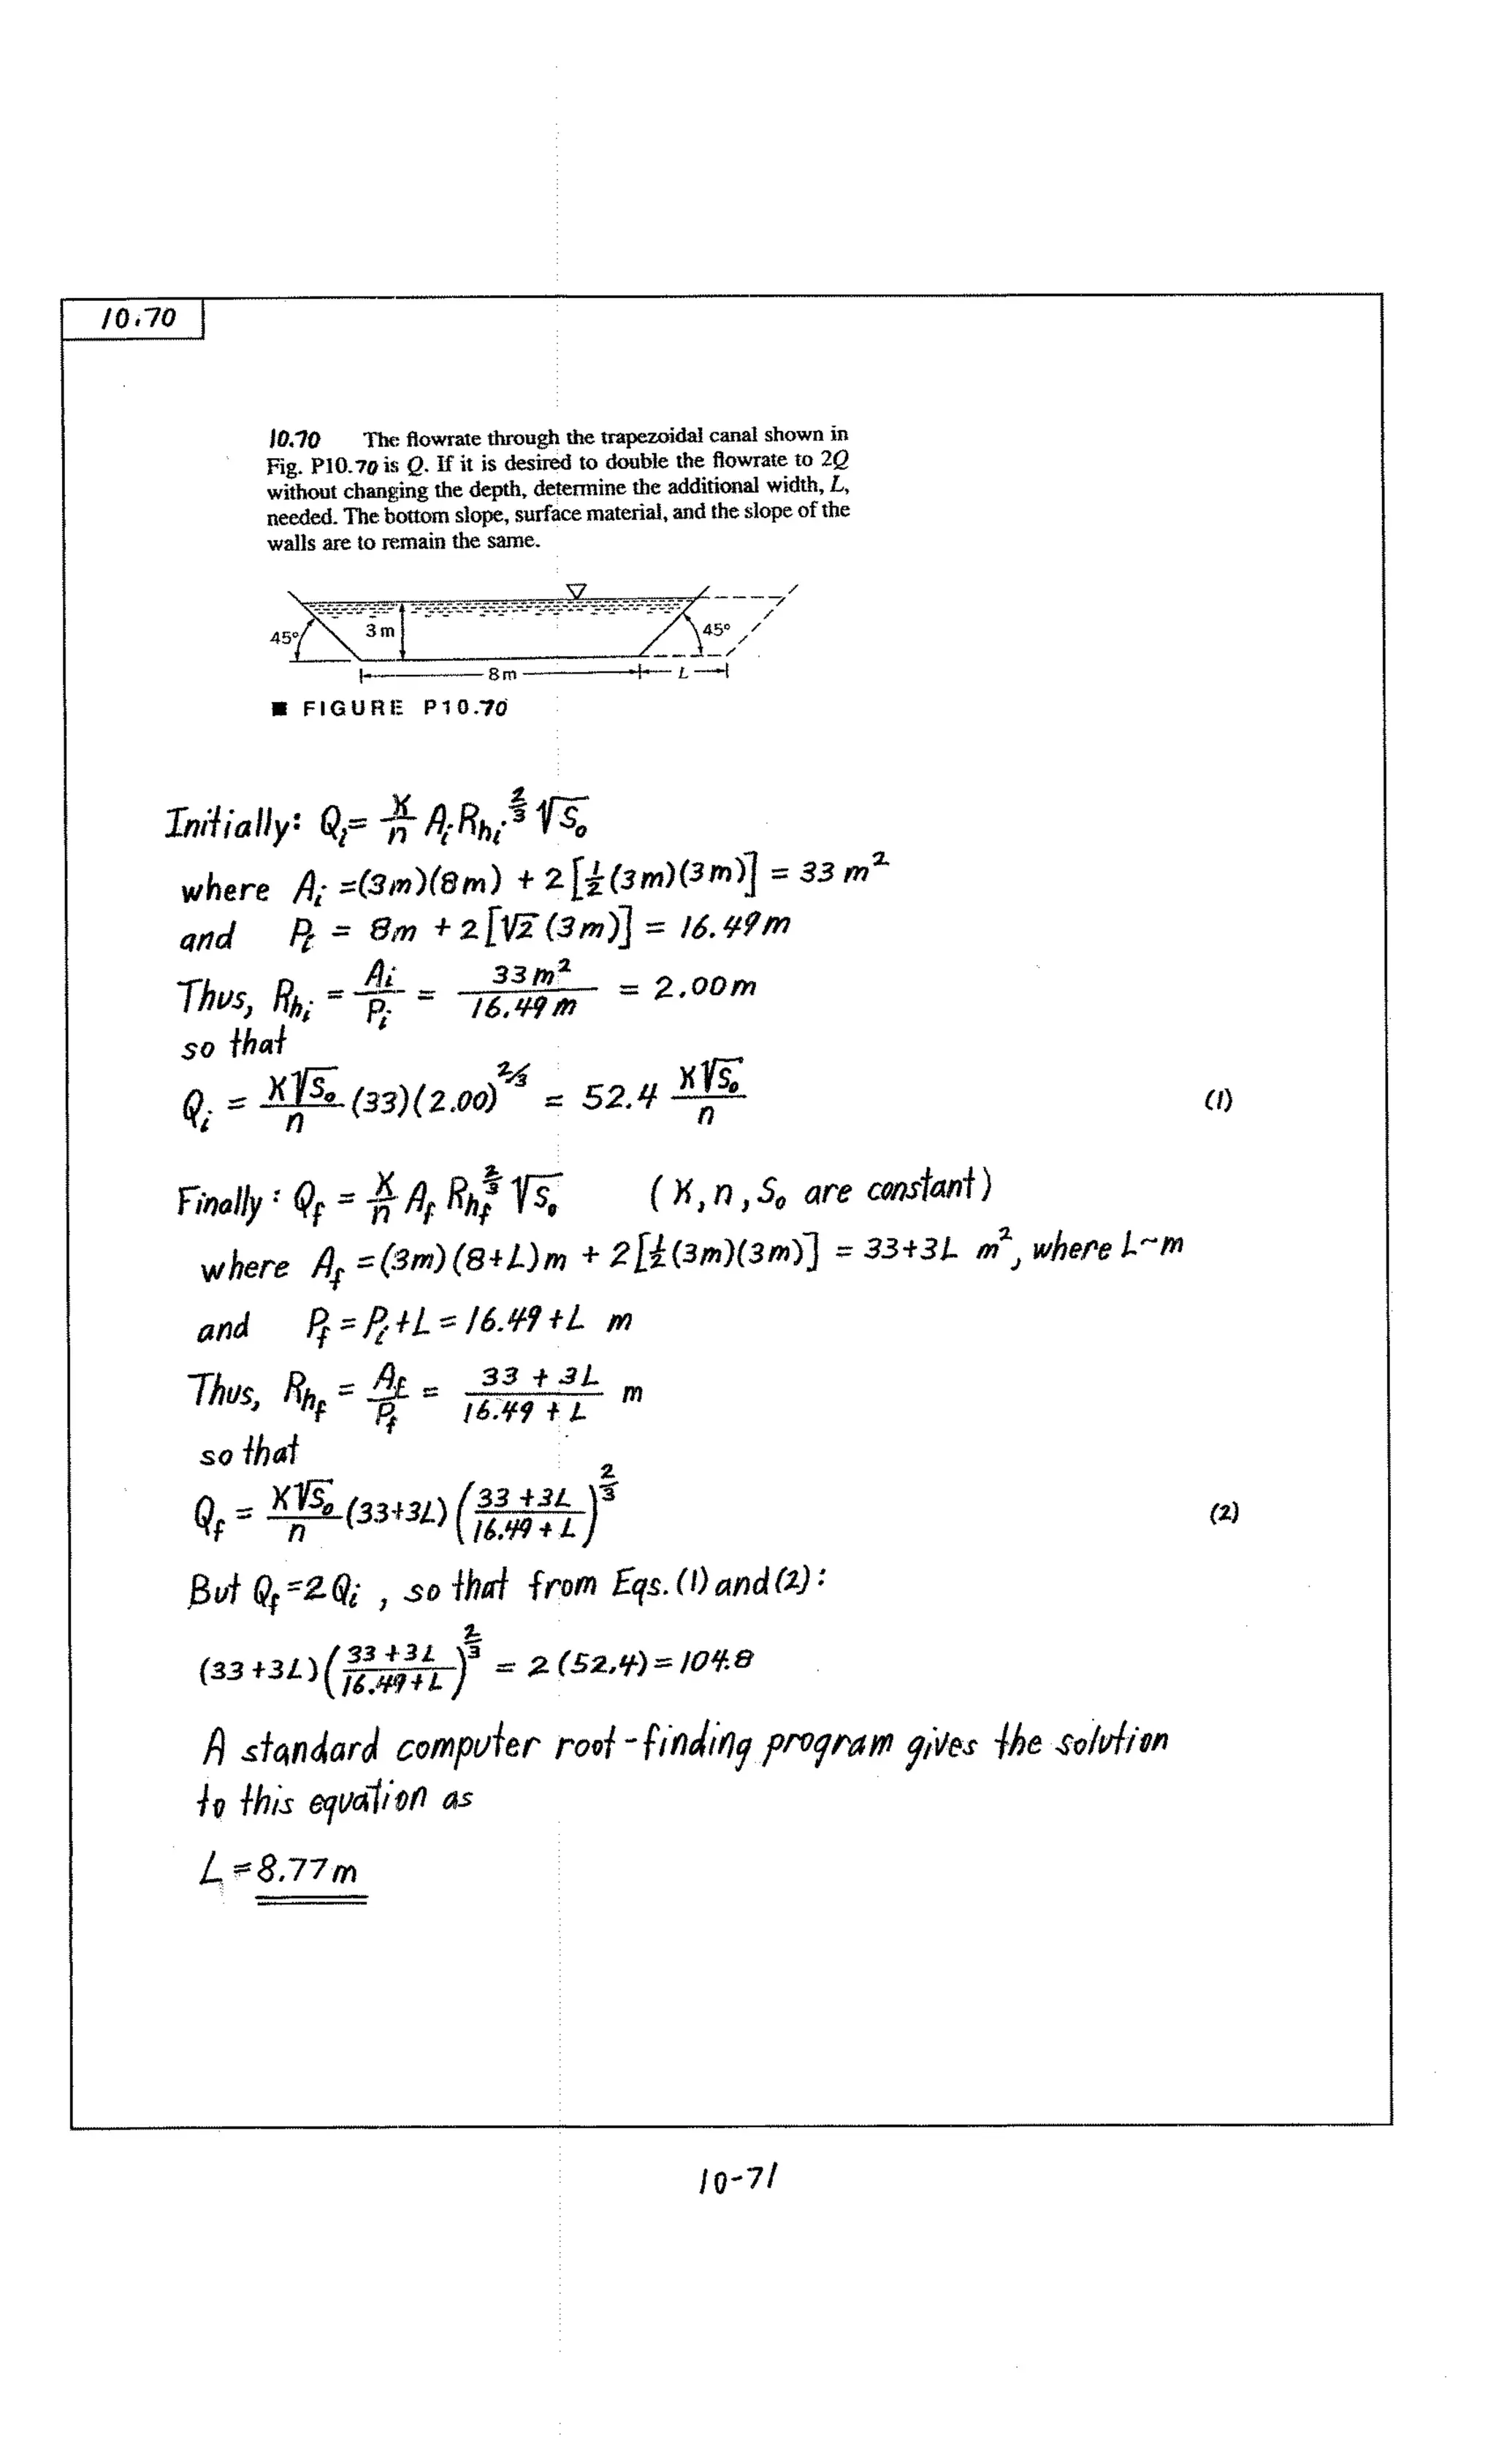 10.70
10.70 The flowrate through the trapezoidal canal shown in
Fig. P10.70 is Q. If it is desired to double the flowrate to 2Q
without changing the depth, determine the additional width, L,
needed. The bottom slope, surface material, and the slope of the
walls are to remain the same.
45° 3 m 45°
8 m L
■ FIGURE P10.70
Initially: Qᵢ = K/n Aᵢ Rₕᵢ^(2/3) √S₀
where Aᵢ = (3m)(8m) + 2[½(3m)(3m)] = 33 m²
and Pᵢ = 8m + 2[√2 (3m)] = 16.49 m
Thus, Rₕᵢ = Aᵢ/Pᵢ = 33 m²/16.49 m = 2.00 m
so that
Qᵢ = K√S₀/n (33)(2.00)^(2/3) = 52.4 K√S₀/n (1)
Finally: Q_f = K/n A_f R_hf^(2/3) √S₀ (K, n, S₀ are constant)
where A_f = (3m)(8+L)m + 2[½(3m)(3m)] = 33+3L m², where L~m
and P_f = Pᵢ + L = 16.49 + L m
Thus, R_hf = A_f/P_f = (33 + 3L)/(16.49 + L) m
so that
Q_f = K√S₀/n (33+3L) ((33 + 3L)/(16.49 + L))^(2/3) (2)
But Q_f = 2Qᵢ , so that from Eqs. (1) and (2):
(33 + 3L) ((33 + 3L)/(16.49 + L))^(2/3) = 2 (52.4) = 104.8
A standard computer root-finding program gives the solution
to this equation as
L = 8.77 m
10-71